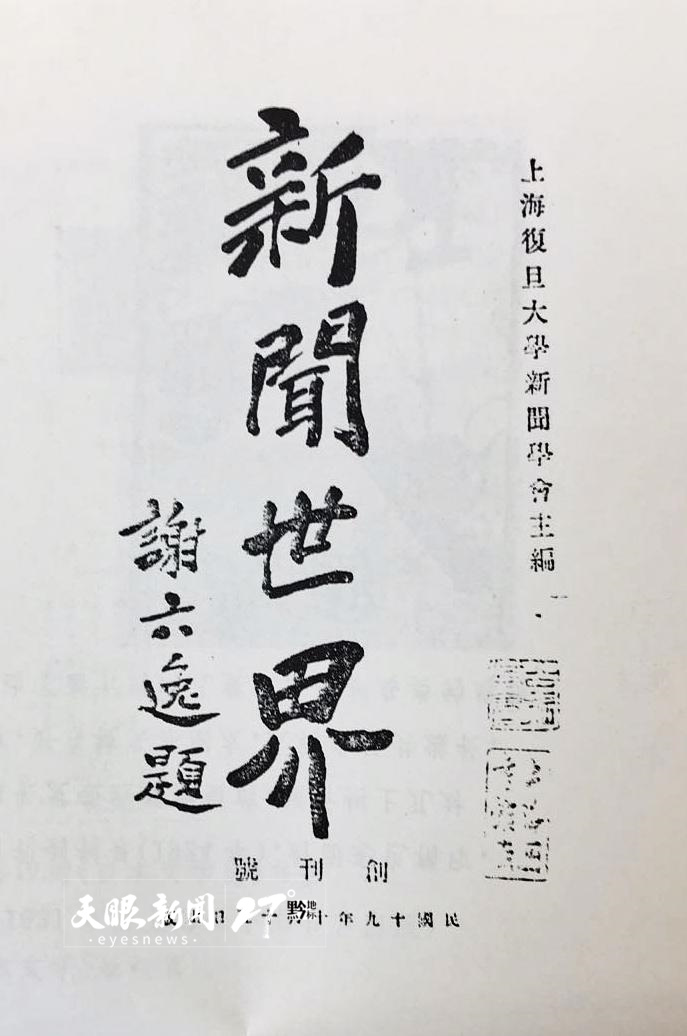 上海復旦大學新聞學會主編
新聞世界
謝六逸題
創刊號
民國十九年十
天眼新聞 27°
黔地标
·eyesnews·